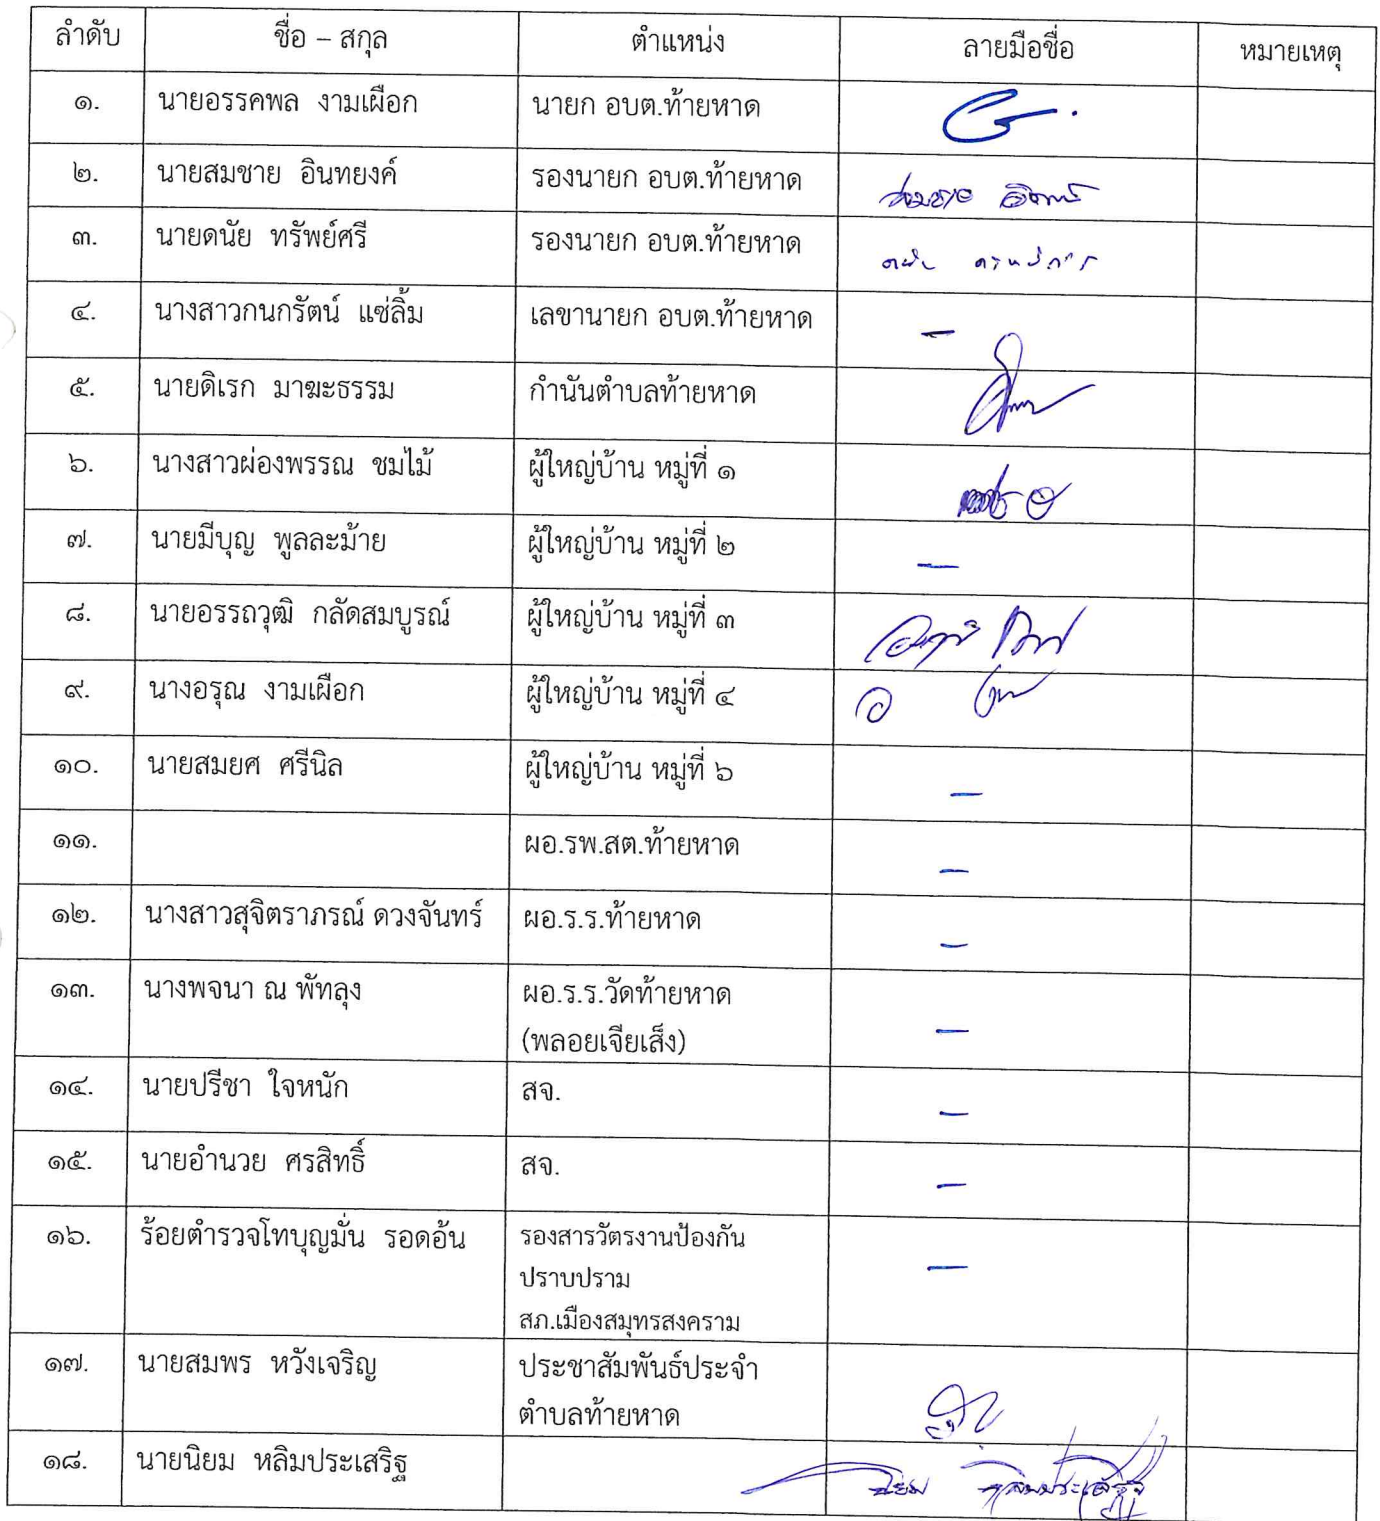 ลำดับ ชื่อ – สกุล ตำแหน่ง ลายมือชื่อ หมายเหตุ
๑. นายอรรคพล งามเผือก นายก อบต.ท้ายหาด
๒. นายสมชาย อินทยงค์ รองนายก อบต.ท้ายหาด
๓. นายดนัย ทรัพย์ศรี รองนายก อบต.ท้ายหาด
๔. นางสาวกนกรัตน์ แซ่ลิ้ม เลขานายก อบต.ท้ายหาด –
๕. นายดิเรก มาฆะธรรม กำนันตำบลท้ายหาด
๖. นางสาวผ่องพรรณ ชมไม้ ผู้ใหญ่บ้าน หมู่ที่ ๑
๗. นายมีบุญ พูลละม้าย ผู้ใหญ่บ้าน หมู่ที่ ๒ –
๘. นายอรรถวุฒิ กลัดสมบูรณ์ ผู้ใหญ่บ้าน หมู่ที่ ๓
๙. นางอรุณ งามเผือก ผู้ใหญ่บ้าน หมู่ที่ ๔
๑๐. นายสมยศ ศรีนิล ผู้ใหญ่บ้าน หมู่ที่ ๖ –
๑๑. ผอ.รพ.สต.ท้ายหาด –
๑๒. นางสาวสุจิตราภรณ์ ดวงจันทร์ ผอ.ร.ร.ท้ายหาด –
๑๓. นางพจนา ณ พัทลุง ผอ.ร.ร.วัดท้ายหาด
(พลอยเจียเส็ง) –
๑๔. นายปรีชา ใจหนัก สจ. –
๑๕. นายอำนวย ศรสิทธิ์ สจ. –
๑๖. ร้อยตำรวจโทบุญมั่น รอดอ้น รองสารวัตรงานป้องกัน
ปราบปราม –
สภ.เมืองสมุทรสงคราม
๑๗. นายสมพร หวังเจริญ ประชาสัมพันธ์ประจำ
ตำบลท้ายหาด
๑๘. นายนิยม หลิมประเสริฐ นิยม หลิมประเสริฐ